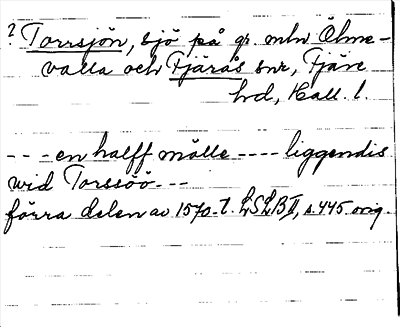 ? Torrsjön, sjö på gr. mln Ölme-
valla och Fjärås snr, Fjäre
hd, Hall. l.
- - - en halff mölle - - - - liggendis
wid Torssöö - - -
förra delen av 1570-t. LSLB II, s. 445 orig.